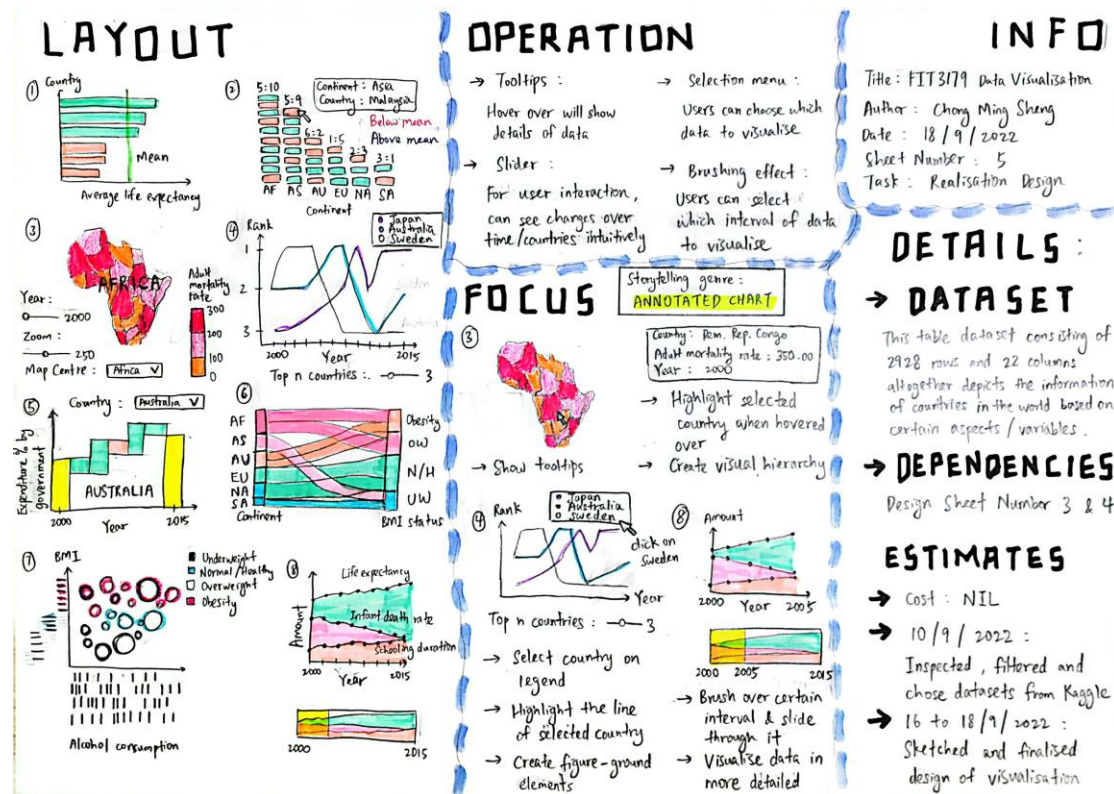 LAYOUT
①
Country
Mean
Average life expectancy
②
5:10
5:9
6:2
1:5
2:3
3:1
Continent : Asia
Country : Malaysia
Below mean
Above mean
AF AS AU EU NA SA
Continent
③
AFRICA
Year :
2000
Zoom :
250
Map Centre : Africa V
Adult
mortality
rate
300
200
100
0
④
Rank
Japan
Australia
Sweden
1
2
3
Sweden
Australia
2000 2015
Year
Top n countries : 3
⑤
Country : Australia V
Expenditure % by
government
AUSTRALIA
2000 2015
Year
⑥
AF
AS
AU
EU
NA
SA
Continent
Obesity
OW
N/H
UW
BMI status
⑦
BMI
Underweight
Normal/Healthy
Overweight
Obesity
Alcohol consumption
⑧
Life expectancy
Infant death rate
Schooling duration
Amount
2000 2015
Year
2000 2015
OPERATION
→ Tooltips :
Hover over will show
details of data
→ Slider :
For user interaction,
can see changes over
time/countries intuitively
→ Selection menu :
Users can choose which
data to visualise
→ Brushing effect :
Users can select
which interval of data
to visualise
FOCUS
Storytelling genre :
ANNOTATED CHART
③
Country : Dem. Rep. Congo
Adult mortality rate : 350.00
Year : 2000
→ Show tooltips
→ Highlight selected
country when hovered
over
→ Create visual hierarchy
④
Rank
Japan
Australia
Sweden
click on
Sweden
Year
Top n countries : 3
→ Select country on
legend
→ Highlight the line
of selected country
→ Create figure-ground
elements
⑧
Amount
2000 Year 2005
2000 2005 2015
→ Brush over certain
interval & slide
through it
→ Visualise data in
more detailed
INFO
Title : FIT3179 Data Visualisation
Author : Chong Ming Sheng
Date : 18/9/2022
Sheet Number : 5
Task : Realisation Design
DETAILS :
→ DATASET
This table dataset consisting of
2928 rows and 22 columns
altogether depicts the information
of countries in the world based on
certain aspects / variables.
→ DEPENDENCIES
Design Sheet Number 3 & 4
ESTIMATES
→ Cost : NIL
→ 10/9/2022 :
Inspected, filtered and
chose datasets from Kaggle
→ 16 to 18/9/2022 :
Sketched and finalised
design of visualisation